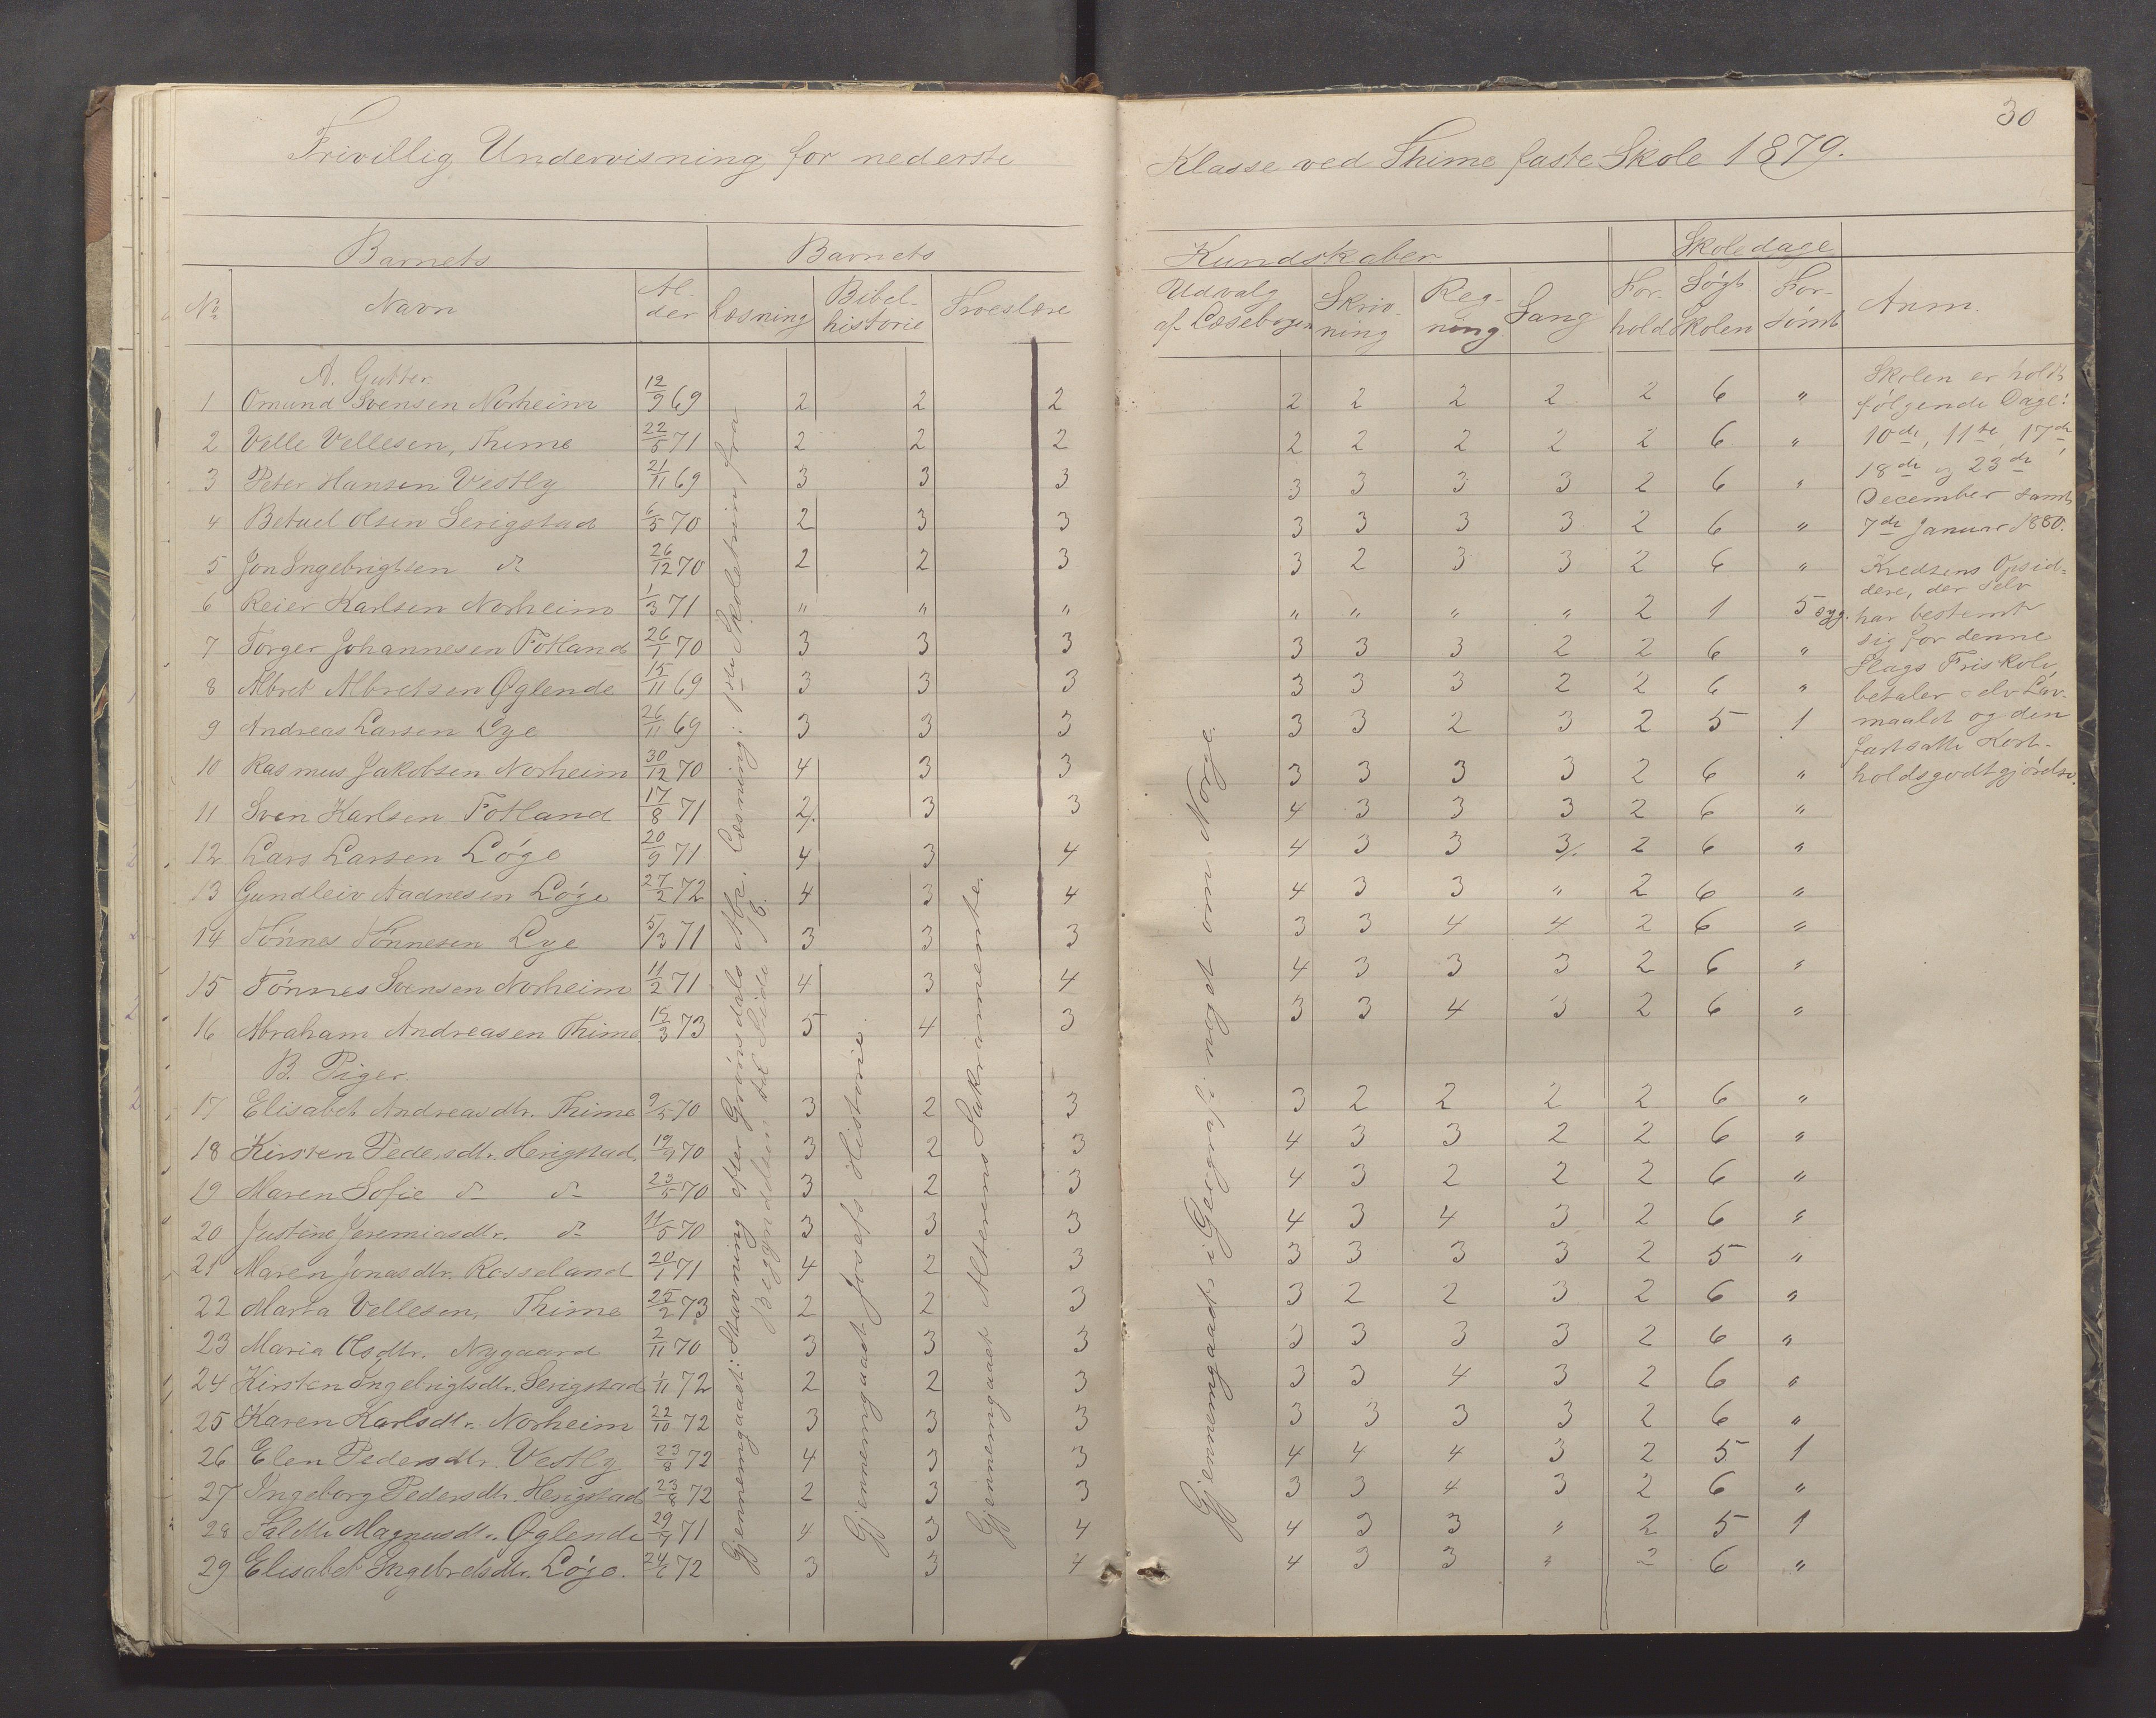 30
Frivillig Undervisning for nederste Klasse ved Thime faste Skole 1879.
Barnets Barnets Kundskaber Skoledage
No Navn Alder Læsning Bibelhistorie Troeslære Udvalg af Læsebogen Skrivning Regning Sang Forhold Søgt Skolen Forsømt Anm.
A. Gutter.
1 Omund Svensen Norheim 12/9 69 2 2 2 2 2 2 2 2 6 "
2 Velle Vellesen, Thime 22/5 71 2 2 2 2 2 2 2 2 6 "
3 Peter Hansen Vestly 21/11 69 3 3 3 3 3 3 3 2 6 "
4 Betuel Olsen Serigstad 6/5 70 2 3 3 3 3 3 3 2 6 "
5 Jon Ingebrigtsen do 26/12 70 2 2 3 3 2 3 3 2 6 "
6 Reier Karlsen Norheim 1/3 71 " " " " " " " 2 1 5 syg.
7 Torger Johannesen Fotland 26/1 70 3 3 3 3 3 3 2 2 6 "
8 Albret Albretsen Øglende 15/11 69 3 3 3 3 3 3 2 2 6 "
9 Andreas Larsen Lye 26/11 69 3 3 3 3 3 2 3 2 5 1
10 Rasmus Jakobsen Norheim 30/12 70 4 3 3 3 3 3 3 2 6 "
11 Sven Karlsen Fotland 17/8 71 2/. 3 3 4 3 3 3 2 6 "
12 Lars Larsen Løge 20/9 71 4 3 4 4 3 3 3/. 2 6 "
13 Gundleiv Aadnesen Løge 27/2 72 4 3 4 4 3 3 " 2 6 "
14 Tønnes Tønnesen Lye 5/3 71 3 3 3 3 3 4 4 2 6 "
15 Tønnes Svensen Norheim 11/2 71 4 3 4 4 3 3 3 2 6 "
16 Abraham Andreasen Thime 12/3 73 5 4 3 3 3 4 3 2 6 "
B. Piger.
17 Elisabet Andreasdtr. Thime 9/5 70 3 2 3 3 2 2 2 2 6 "
18 Kirsten Pedersdtr. Herigstad. 19/9 70 3 2 3 4 3 3 2 2 6 "
19 Maren Sofie do do 23/5 70 3 2 3 4 3 2 2 2 6 "
20 Justine Jeremiasdtr. do 11/5 70 3 3 3 4 3 4 3 2 6 "
21 Maren Jonasdtr. Rosseland 20/1 71 4 2 3 3 3 3 3 2 5 "
22 Marta Vellesen, Thime 25/2 73 2 2 3 3 2 2 3 2 6 "
23 Maria Olsdtr. Nygaard 2/11 70 3 3 3 3 3 3 3 2 6 "
24 Kirsten Ingebrigtsdtr. Serigstad 1/11 72 2 2 3 3 3 4 3 2 6 "
25 Karen Karlsdtr. Norheim 22/10 72 3 3 3 3 3 3 3 2 6 "
26 Elen Pedersdtr. Vestly 23/8 72 4 3 3 4 4 4 3 2 5 1
27 Ingeborg Pedersdtr. Herigstad 23/8 72 2 3 3 3 3 4 3 2 6 "
28 Magnusdtr. Øglende 29/9 71 4 3 4 4 3 3 " 2 5 1
29 Elisabet Ingebretsdtr. Løge. 24/6 72 3 3 4 4 3 3 " 2 6 "
Gjennemgaaet: Stavning efter Grønsdals Abc. Læsning: 1ste Skoletrin fra
Begyndelsen til Side 16.
Gjennemgaaet Josefs Historie.
Gjennemgaaet Alterens Sakramente.
Gjennemgaaet i Geografi: noget om Norge.
Skolen er holdt
følgende Dage:
10de, 11te, 17de,
18de og 23de
December samt
7de Januar 1880.
Kredsens Opsid-
dere, der selv
har bestemt
sig for denne
Slags Friskole,
betaler selv Lær-
maalet og den
fastsatte Kost-
holdsgodtgjørelse.